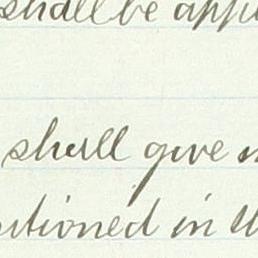 shall be appo
shall give n
itioned in th